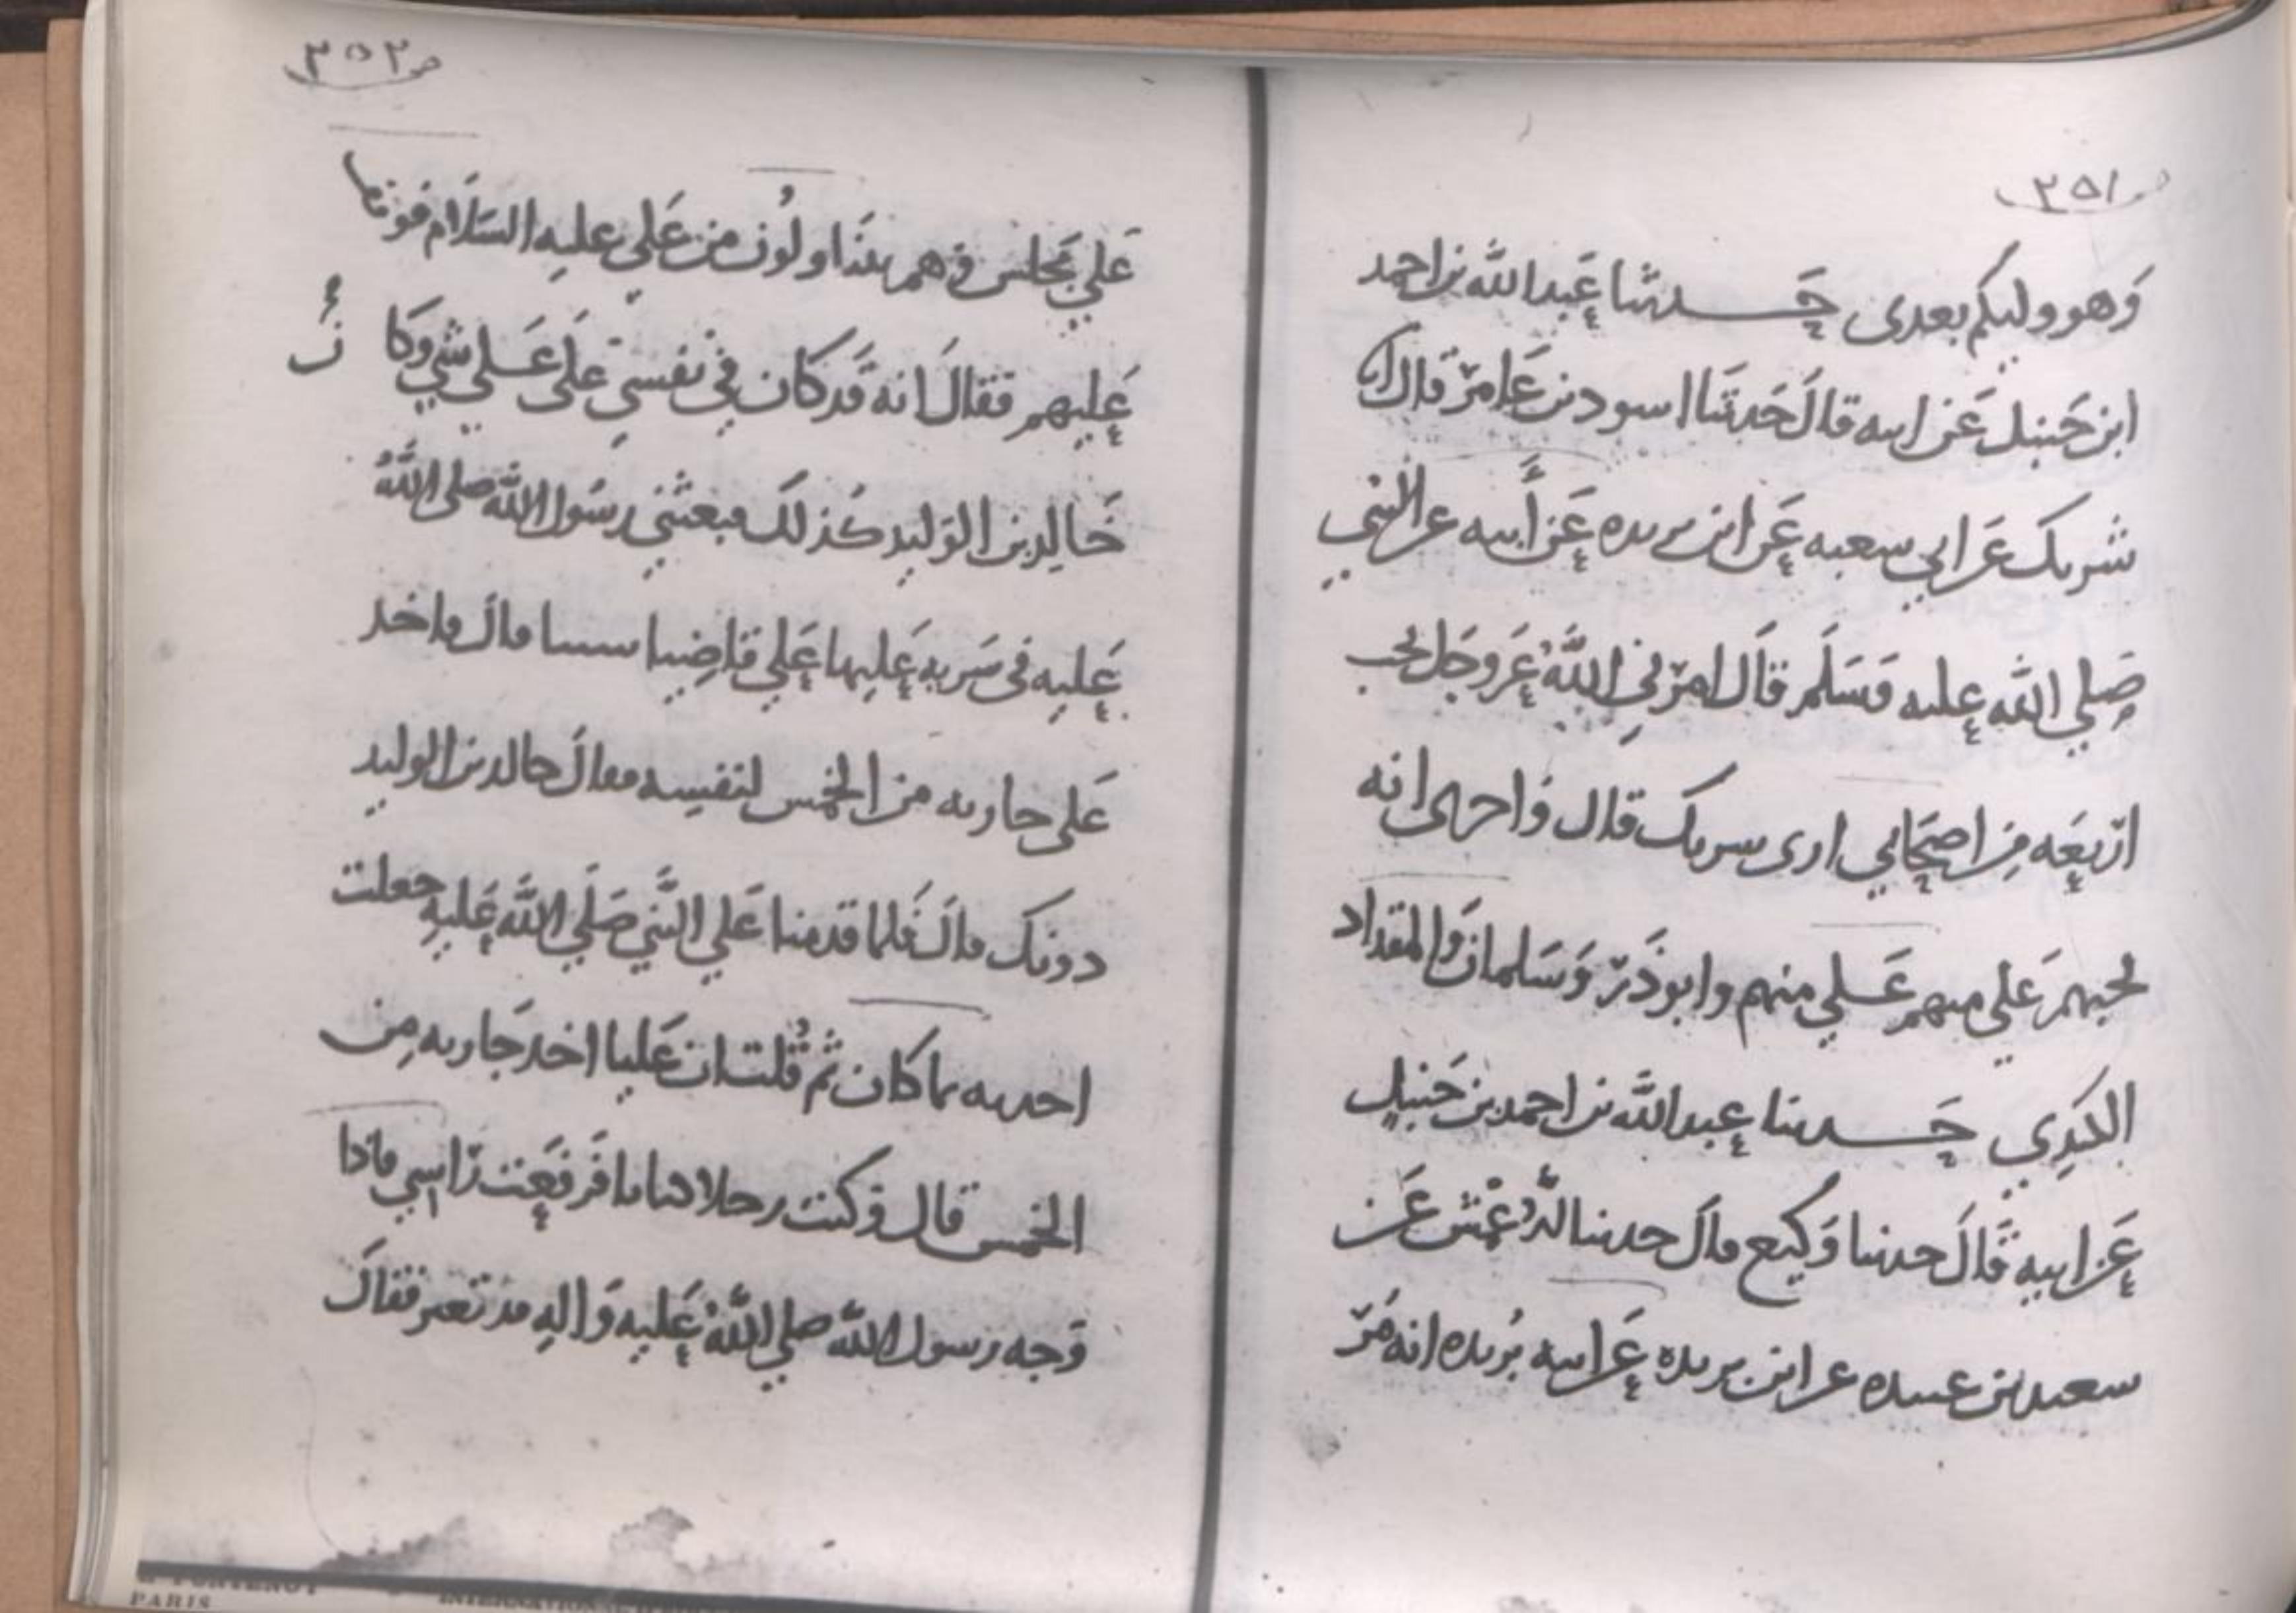 ص ٣٥١
وهو وليكم بعدي حدثنا عبدالله بن احمد
ابن حنبل عن ابيه قال حدثنا اسود بن عامر قال انا
شريك عن ابي ربيعه عن ابن بريده عن أبيه عن النبي
صلي الله عليه وسلم قال امرني الله عز وجل بحب
اربعه من اصحابي ارى شريك قال واخبرني انه
يحبهم علي منهم علي منهم وابو ذر وسلمان والمقداد
الكندي حدثنا عبد الله بن احمد بن حنبل
عن ابيه قال حدثنا وكيع قال حدثنا الاعمش عن
سعيد بن عبيده عن ابن بريده عن ابيه بريده انه مر
ص ٣٥٢
علي مجلس وهم يتناولون من علي عليه السلام فوقف
عليهم فقال انه قد كان في نفسي على علي شي وكان
خالد بن الوليد كذلك فبعثني رسول الله صلى الله
عليه في سريه عليها علي فاصبنا سبيا قال واخذ
على جاريه من الخمس لنفسه فقال خالد بن الوليد
دونك قال فلما قدمنا علي النبي صلي الله عليه جعلت
احدثه بما كان ثم قلت ان عليا اخذ جاريه من
الخمس قال وكنت رجلا مكبابا فرفعت راسي فاذا
وجه رسول الله صلي الله عليه واله قد تغير فقال
PARIS